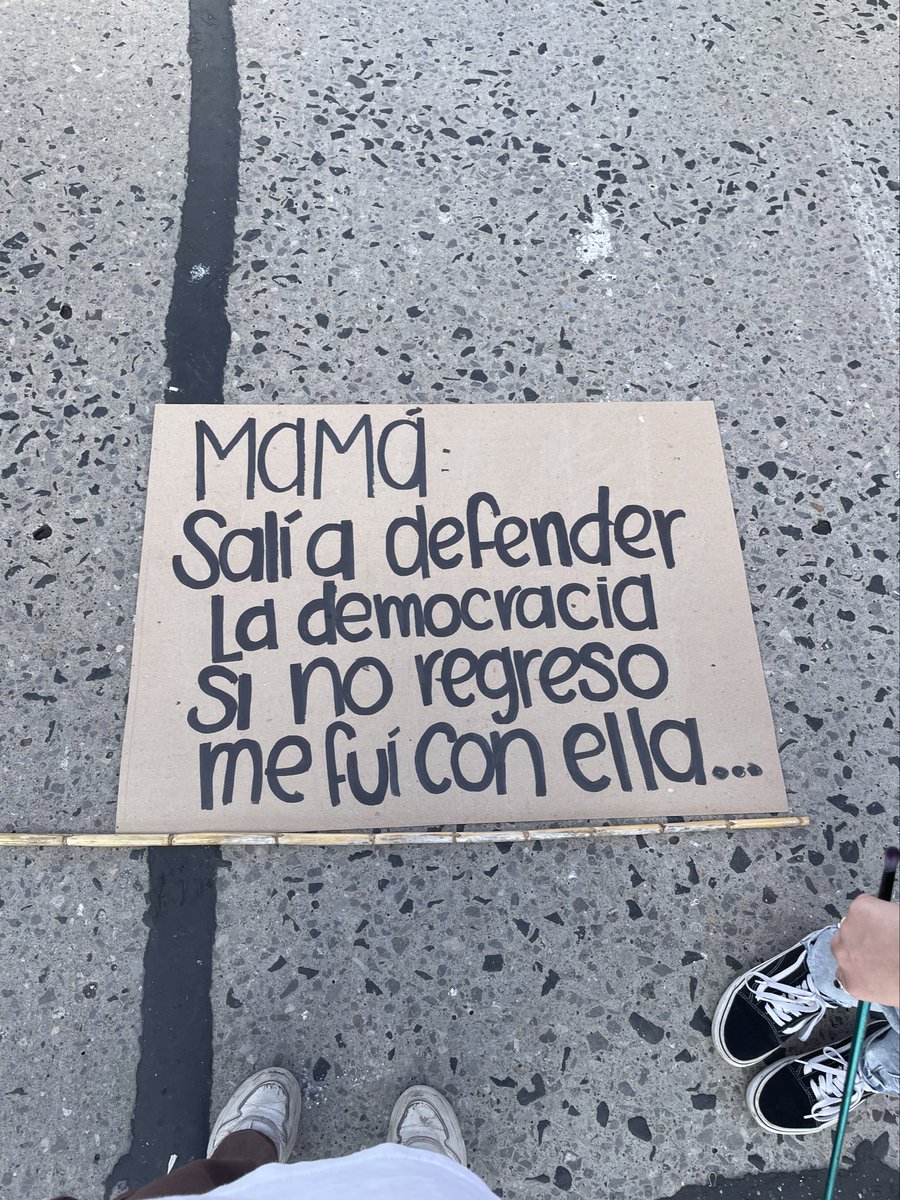 MaMá:
Salí a defender
La democracia
si no regreso
me fuí con ella...